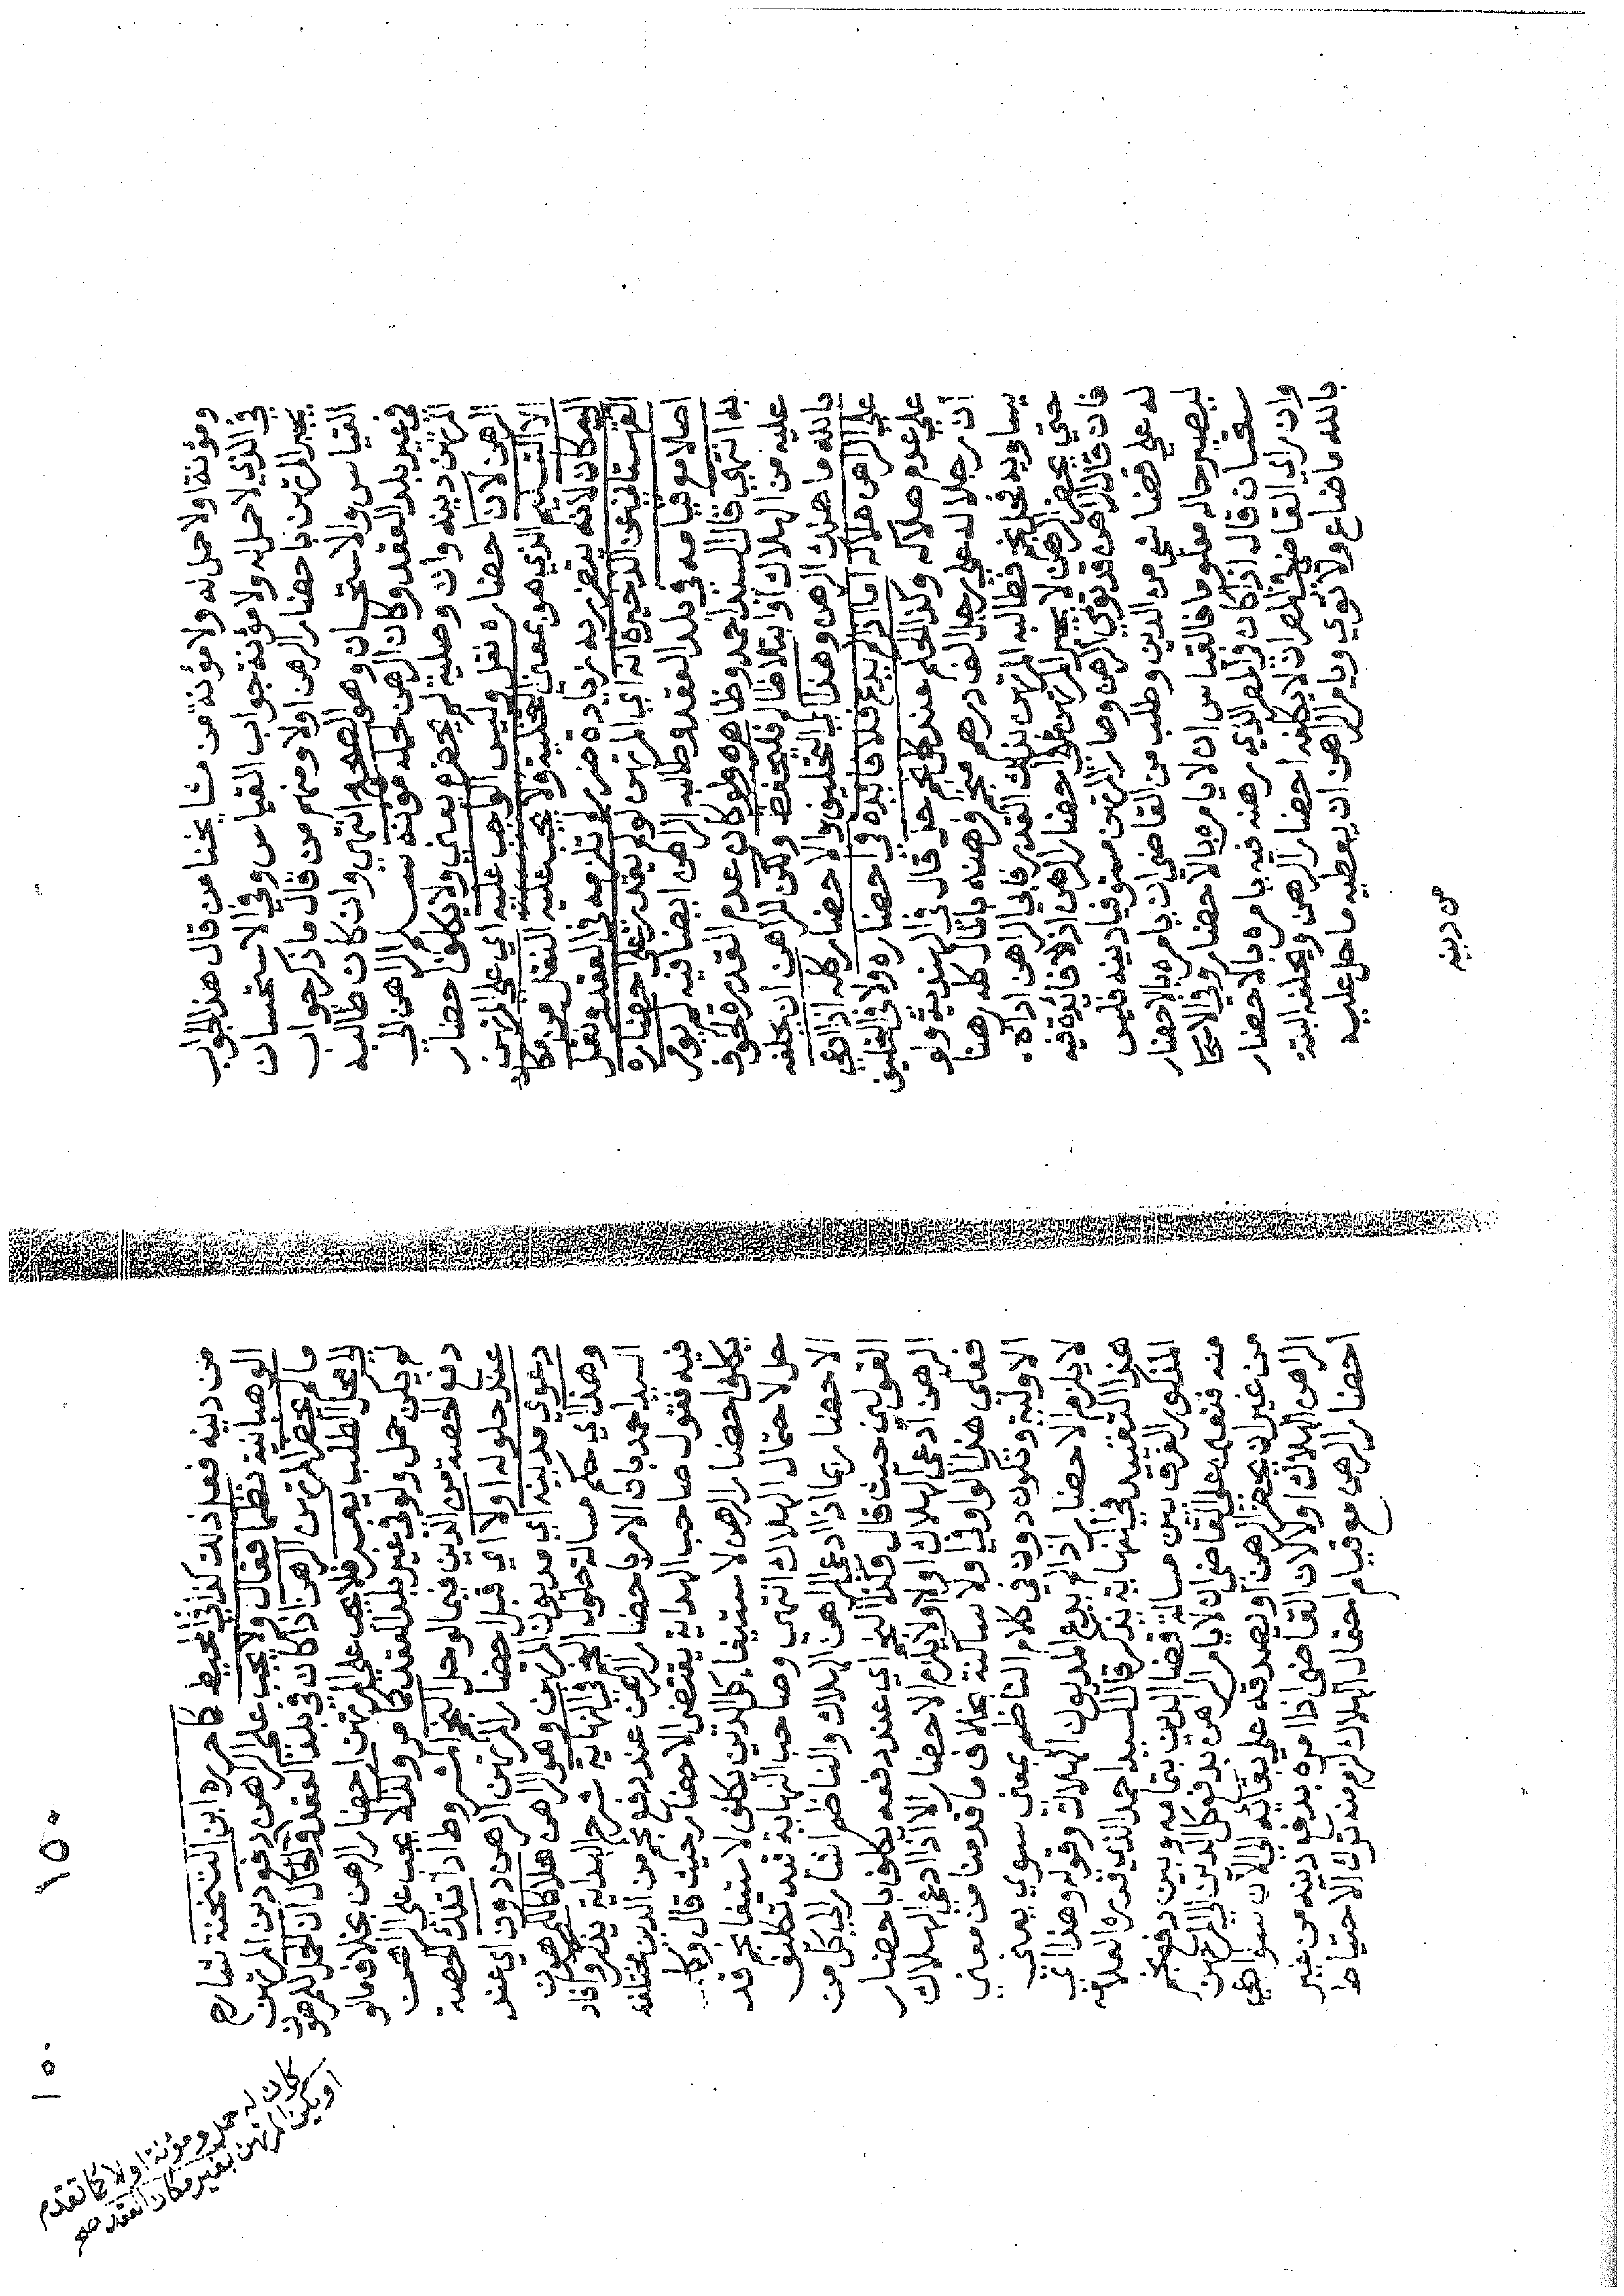 ومؤنة اولا حمل له ولا مؤنة من مشايخنا من قال هذا الجواب
في الذي لا حمل له ولا مؤنة جواب القياس وفي الاستحسان
يجبر المرتهن باحضار الرهن اولا ومنهم من قال ما ذكر جواب
القياس والاستحسان وهو الصحيح انتهي وان كان طالبه
في غير بلد العقد وكان الرهن لحمله مؤنة سلم الراهن الي
المرتهن دينه وان وصلية لم يحضره يعني ولا يكلف احضار
الرهن لان احضاره نقل وليس الواجب عليه اي علي المرتهن
الا التسليم الذي هو بمعني التخلية ولا يجب عليه النقل من مكان
الي مكان لانه يتضرر به زيادة ضرر لم تلزمه في العقد ونقل
القهستاني عن الذخيرة انه اي المرتهن لو لم يقدر علي احضاره
اصلا مع قيامه في بلد العقد وطالبه الراهن ايضا فيه لم يؤمر
به انتهي قال السيد احمد وظاهره ولو كان عدم القدرة لخوف
عليه من الهلاك او ابتلاظالم فليحفظ ولكن للراهن ان يحلفه
بالله ما هلك الرهن وهذا اي التحليف والاحضار كله اذا ادعي
علي الراهن هلاكه اما اذا لم يدع فلا فائدة في احضاره ولا في التحليف
علي عدم هلاكه وكذا الحكم عند كل نجم حل قال في الهندية ولو
ان رجلا له علي رجل الف درهم منجم فرهنه بالمال كله رهنا
يساويه فحل نجم فطالبه المرتهن بذلك القدر فابي الراهن اداه
حتي يحضر الرهن لا يجبر المرتهن علي احضار الرهن اذ لا فائدة فيه
فان قال الراهن قد توي الرهن وصار المرتهن مستوفيا دينه فليس
له علي قضا شي من الدين وطلب من القاضي ان يامره بالاحضار
ليصير حاله معلوما فالقياس ان لا يامره بالاحضار وفي الاستحا
سقيان قال اذا كان في المصر الذي رهنه فيه يامره بالاحضار
وان راي القاضي في المصر ان لا يكلفه احضار الرهن ويحلفه البتة
بالله ما ضاع ولا توي ويامر الراهن ان يعطيه ما حل عليه
من دينه
١٥٠
من دينه فعل ذلك كذا في المحيط كما حرره ابن الشحنة شارح
الوهبانية نظما فقال ولا يجب علي الرهن دفع دين المرتهن
ما لم يحضر المرتهن الرهن اذا كان في بلد العقد والحال ان الحمل للرهون
كان له حمل ومؤنة اولا كما تقدم
او يكن المرتهن بغير مكان العقد صح
لم يكن حمل ولو في غير بلد العقد كما مر وكذا لا يجب علي الراهن
دفع الحصة من الدين فيما لو حل النجم المشروط اداتلك الحصة
عند حلوله اولا اي قبل احضار المرتهن الرهن دون اي عند
دعوي مدينه اي مديون المرتهن وهو الراهن هلاك المرهون
وهذا اي حكم مسالة حلول النجم في النهاية شرح الهداية يذكر وافاد
السيد احمد بان الامر باحضار الرهن عند دفع نجم من الدين مختلف
فيه فقول صاحب الهداية يقتضي الاحضار حيث قال وكما
يكلف احضار الرهن لاستيفاء كل الدين يكلف لاستيفا نجم قد
حل لاحتمال الهلاك انتهي وصاحب النهاية قيد تكليف
الاحضار بما اذا ادعي الراهن الهلاك والناظم اشار الي كل من
القولين حيث قال وكذا النجم اي عند دفعه يكلف باحضار
الرهن ادعي الهلاك او لا ولا يلزم الاحضار الا اذا ادعي الهلاك
فعلي هذا الواو في اولا ساكنة بخلاف ما قدمنا من معني
الاولية وتكون دون في كلام الناظم بمعني سوي يعني
لا يلزم الاحضار اذا لم يدع المديون الهلاك وقوله وهذا اي
هذا التقييد في النهاية يذكر قال السيد احمد الذي قرره العلامة
المذكور الفرق بين مسالة قضا الدين بتمامه وبين دفع نجم
منه فنقل علي القاضي ان لا يامر الراهن بدفع كل الدين الي المرتهن
من غير ان يحضر الرهن او يصدقه علي بقائه الي الان سوا ادعي
الراهن الهلاك اولا لان القاضي اذا امره بدفع دينه من غير
احضار الرهن مع قيام احتمال الهلاك لزم منه ترك الاحتياط